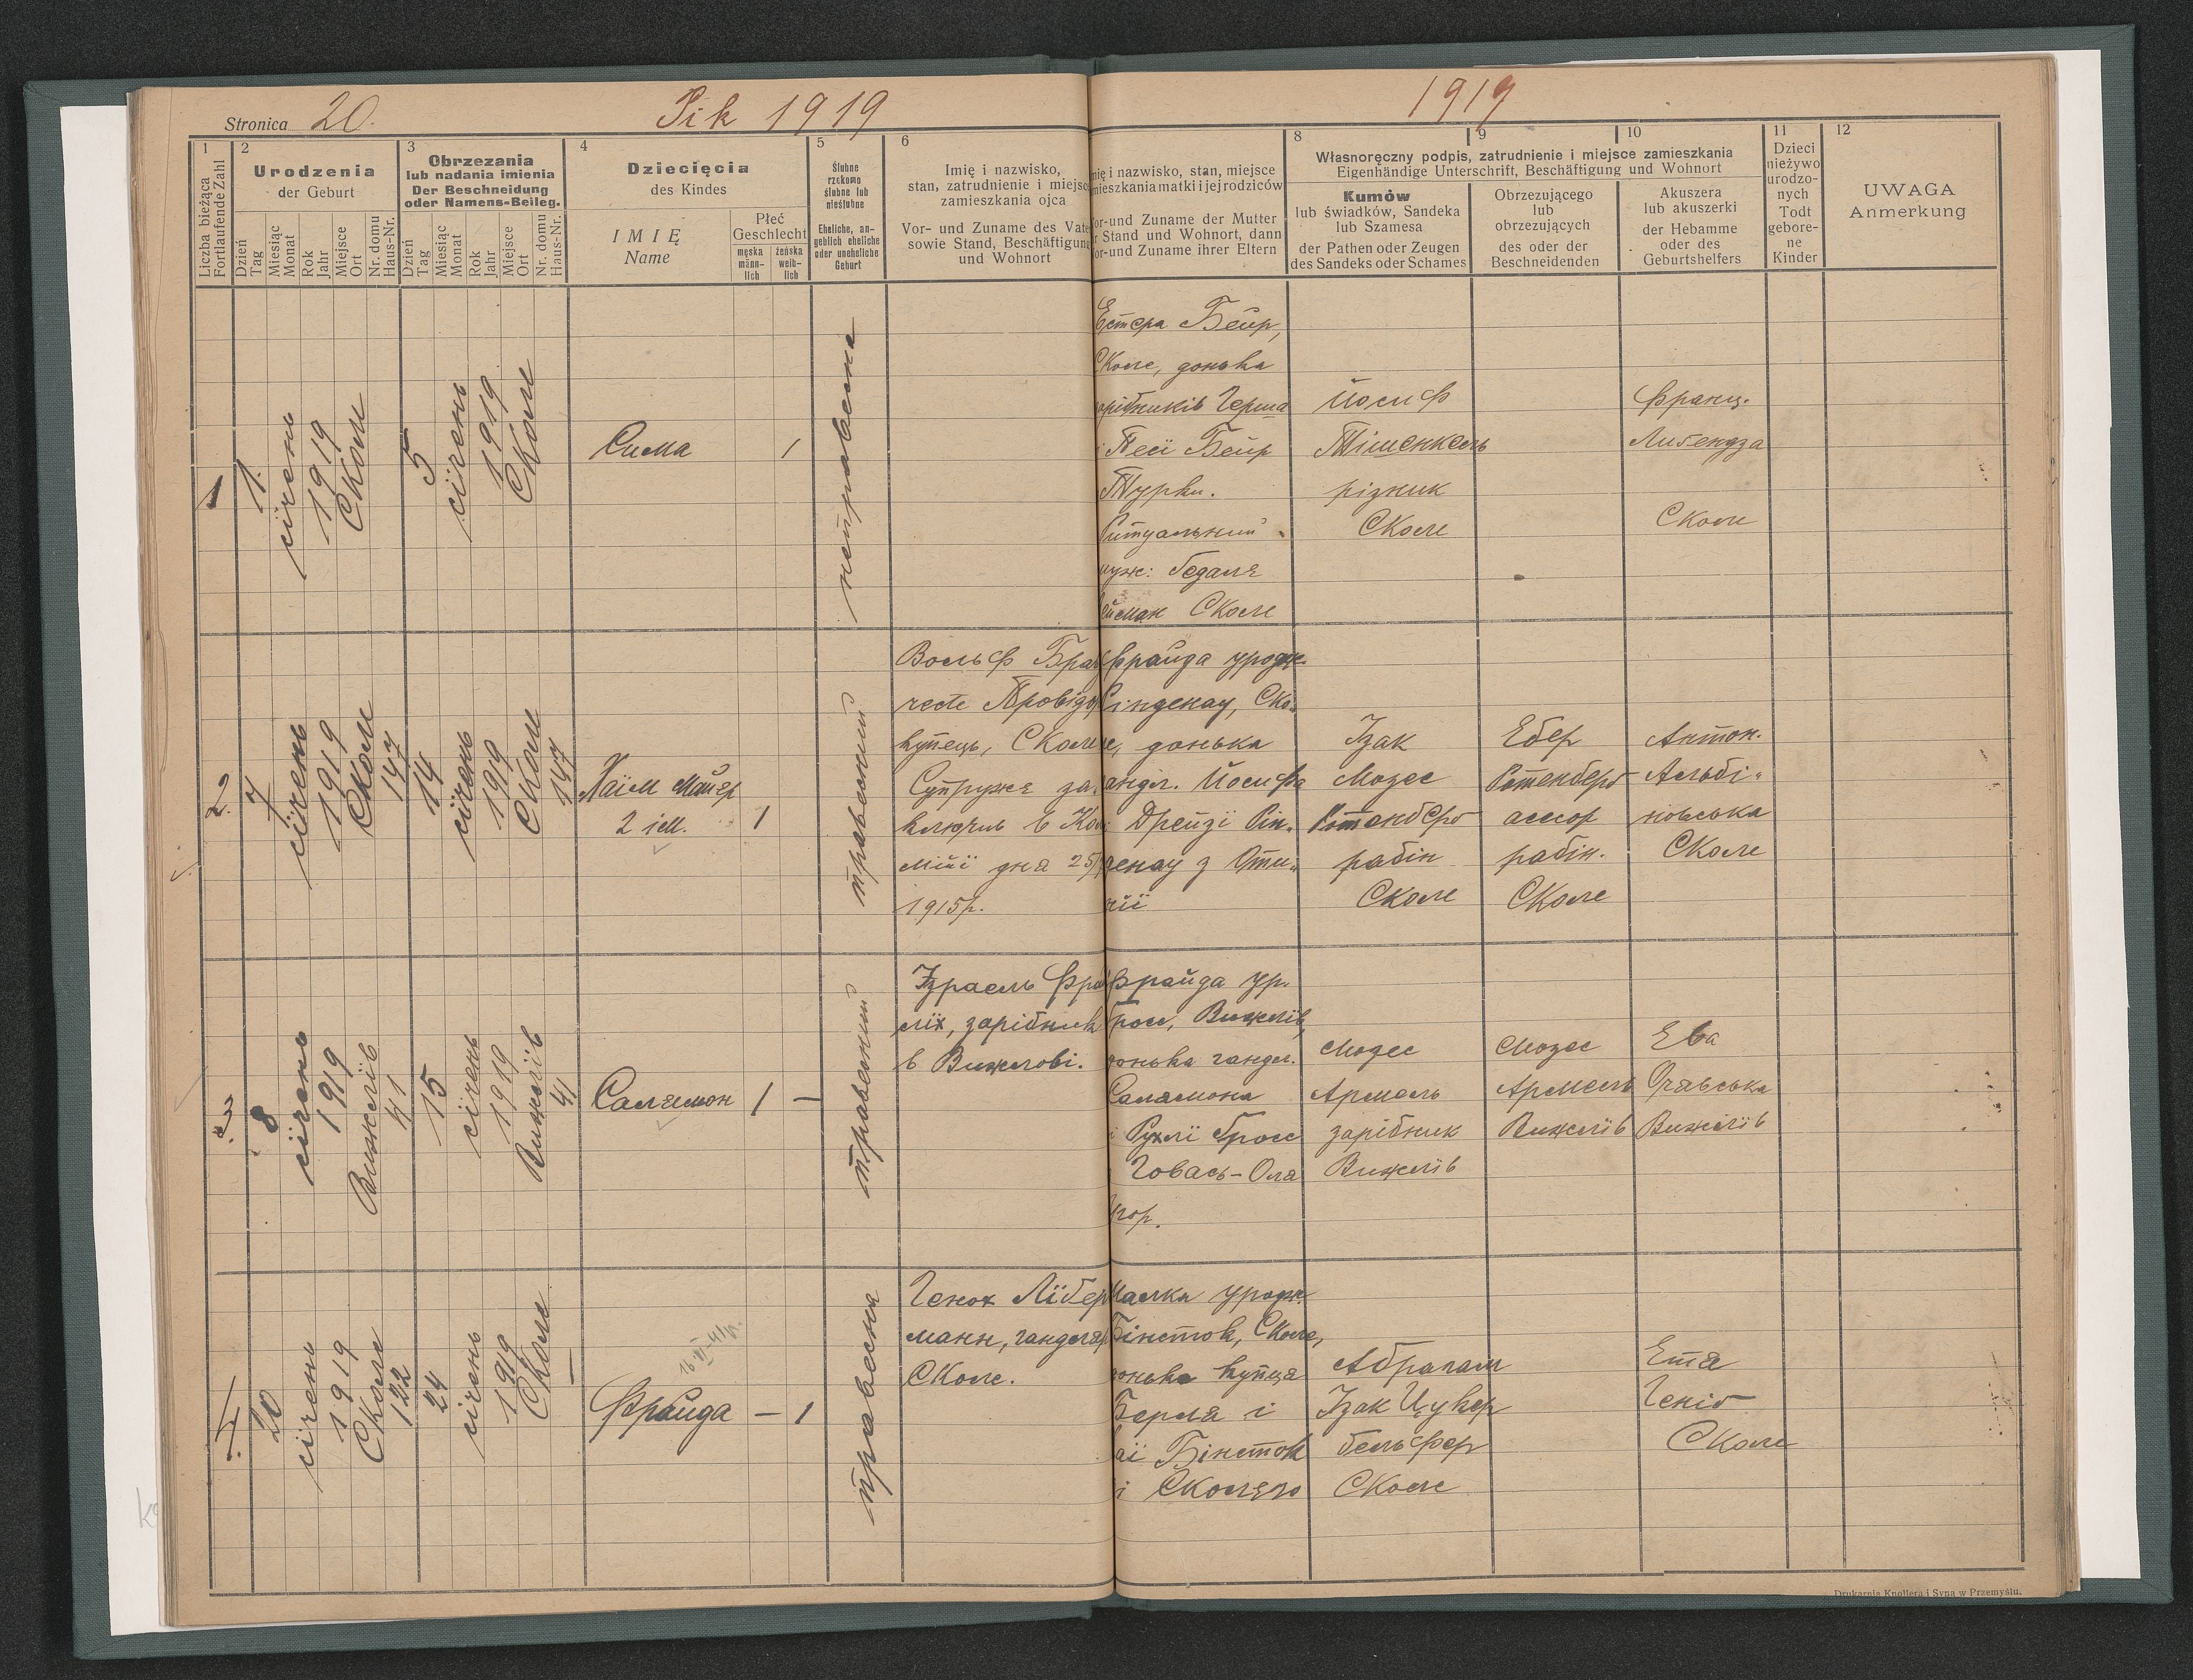 Stronica 20.
Рік 1919
1919
1
Liczba bieżąca
Fortlaufende Zahl
2
Urodzenia
der Geburt
Dzień
Tag
Miesiąc
Monat
Rok
Jahr
Miejsce
Ort
Nr. domu
Haus-Nr.
3
Obrzezania
lub nadania imienia
Der Beschneidung
oder Namens-Beileg.
Dzień
Tag
Miesiąc
Monat
Rok
Jahr
Miejsce
Ort
Nr. domu
Haus-Nr.
4
Dziecięcia
des Kindes
IMIĘ
Name
Płeć
Geschlecht
męska
männ-
lich
żeńska
weib-
lich
5
Ślubne
rzekomo
ślubne lub
nieślubne
Eheliche, an-
geblich eheliche
oder uneheliche
Geburt
6
Imię i nazwisko,
stan, zatrudnienie i miejsce
zamieszkania ojca
Vor- und Zuname des Vate
sowie Stand, Beschäftigung
und Wohnort
mię i nazwisko, stan, miejsce
mieszkania matki i jej rodziców
Vor-und Zuname der Mutter
r Stand und Wohnort, dann
or-und Zuname ihrer Eltern
8
9
10
Własnoręczny podpis, zatrudnienie i miejsce zamieszkania
Eigenhändige Unterschrift, Beschäftigung und Wohnort
Kumów
lub świadków, Sandeka
lub Szamesa
der Pathen oder Zeugen
des Sandeks oder Schames
Obrzezującego
lub
obrzezujących
des oder der
Beschneidenden
Akuszera
lub akuszerki
der Hebamme
oder des
Geburtshelfers
11
Dzieci
nieżywo
urodzo-
nych
Todt
gebore-
ne
Kinder
12
UWAGA
Anmerkung
1
1.
січень
1919
Сколе
5
січень
1919
Сколе
Сима
1
неправесна
Естера Беир,
Сколе, донька
зарібників Герша
і Песї Беир
Турки.
Ритуальний
муж: Ґедаля
Сколе
Йосиф
Тішенкель
різник
Сколе
Франц.
Либендза
Сколе
2.
7
січень
1919
Сколе
147
14
січень
1919
Сколе
147
Хаім Майер
2 ім.
1
правесний
Вольф
recte Провізор
купець, Сколе
Супружя за-
ключив в Коло
мийї дня 25/
1915р.
Фрайда уродж.
Рінденау, Ско-
ле, донька
гандл. Йосифа
і Дрейзї Рін.
денау з Оти„
нїї
Ізак
Мозес
Ротенберґ
рабін
Сколе
Ебер
Ротенберґ
асесор
рабін.
Сколе
Антон.
Альбі„
новська
Сколе
3.
8
січень
1919
Вижлїв
41
15
січень
1919
Вижлїв
41
Салямон
1
—
правесний
Ізраель Фрай
ліх, зарібник
в Вижлові.
Фрайда ур.
Ґросс, Вижлів,
донька гандл.
Саламона
і Рухлї Ґросс
Говась-Оля
Угор.
Мозес
Армель
зарібник
Вижлїв
Мозес
Армель
Вижлїв
Ева
Очавська
Вижлїв
4.
20
січень
1919
Сколе
122
24
січень
1919
Сколе
—
16/VI-41р.
Фрайда
—
1
правесна
Генох Лїбер
манн, гандляр
Сколе.
Малка уродж.
Бінсток, Сколе,
донька купця
Берля і
Бінсток
зі Скольго
Абрагам
Ізак Цукер
бельфер
Сколе
Етя
Геніґ
Сколе
Drukarnia Knollera i Syna w Przemyślu.